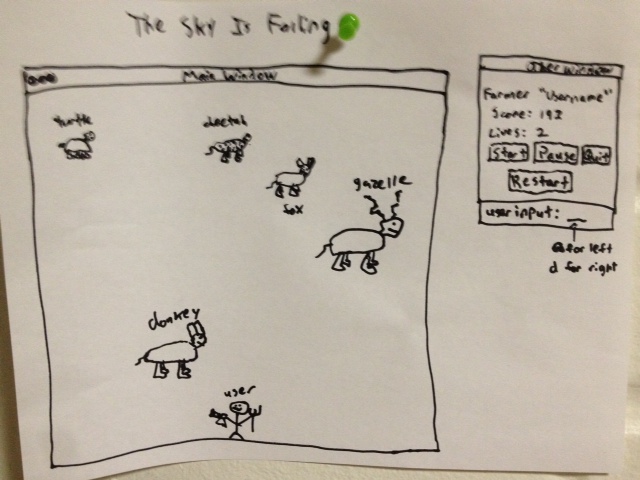 The Sky Is Falling
Main Window
turtle
cheetah
fox
gazelle
donkey
user
User window
Farmer "Username"
Score: 192
Lives: 2
Start Pause Quit
Restart
user input: _
a for left
d for right